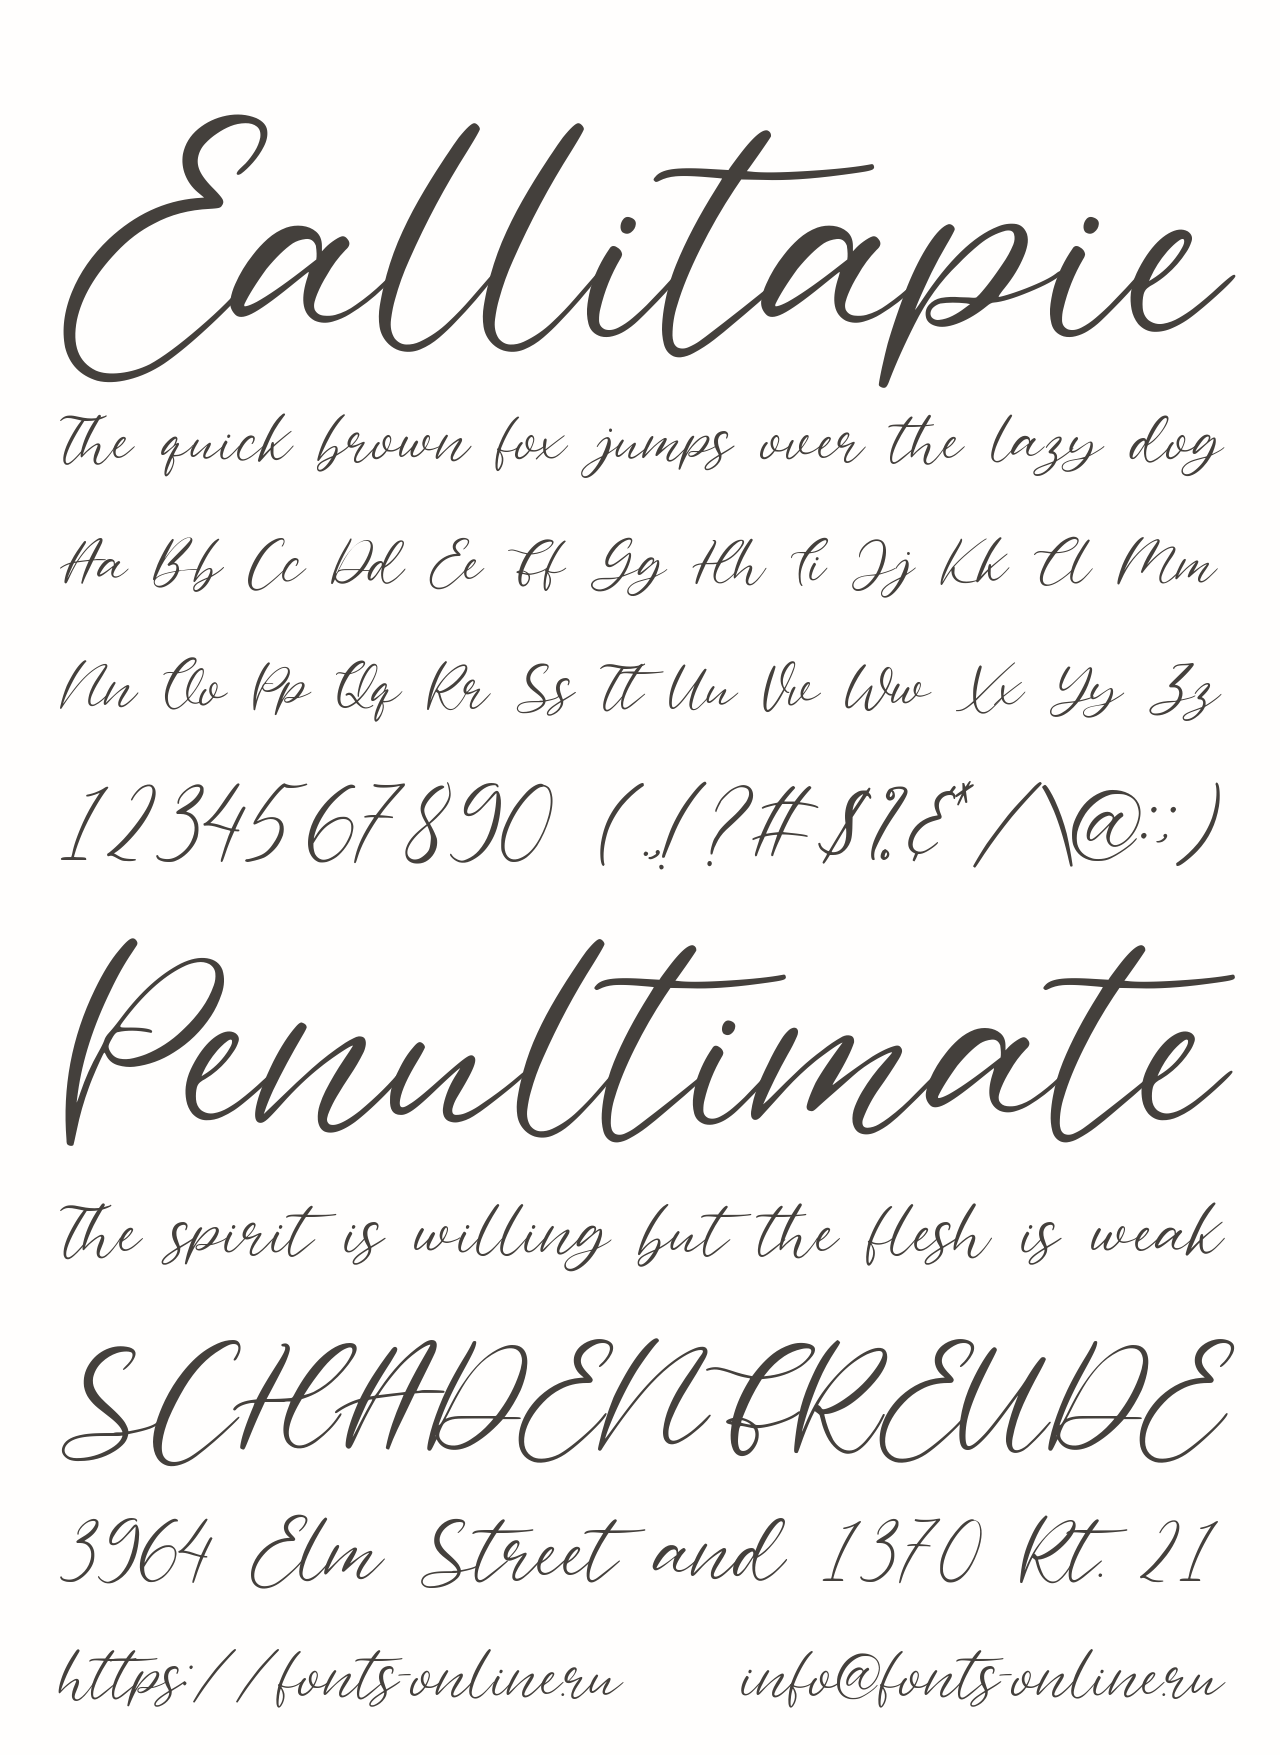 Eallitapie
The quick brown fox jumps over the lazy dog
Aa Bb Cc Dd Ee Ff Gg Hh Ii Jj Kk Ll Mm
Nn Oo Pp Qq Rr Ss Tt Uu Vv Ww Xx Yy Zz
1234567890 (.,!?#$%&*/\@:;)
Penultimate
The spirit is willing but the flesh is weak
SCHADENFREUDE
3964 Elm Street and 1370 Rt. 21
https://fonts-online.ru info@fonts-online.ru